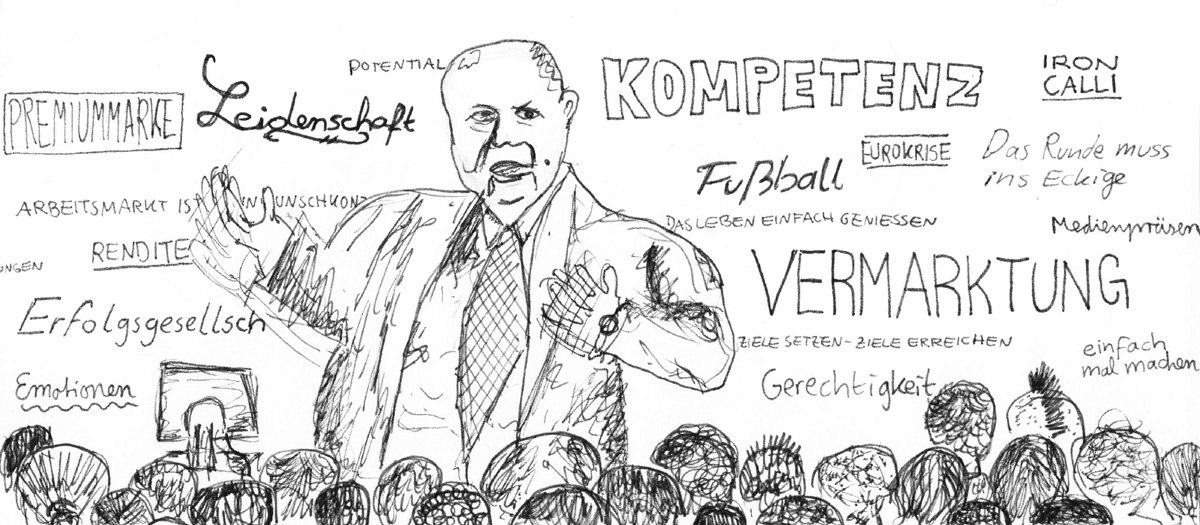 POTENTIAL
KOMPETENZ
IRON
CALLI
PREMIUMMARKE
Leidenschaft
EUROKRISE
Das Runde muss
ins Eckige
Fußball
ARBEITSMARKT IST
DAS LEBEN EINFACH GENIESSEN
Medienpräsen
RENDITE
UNGEN
VERMARKTUNG
Erfolgsgesellsch
ZIELE SETZEN - ZIELE ERREICHEN
einfach
mal machen
Emotionen
Gerechtigkeit